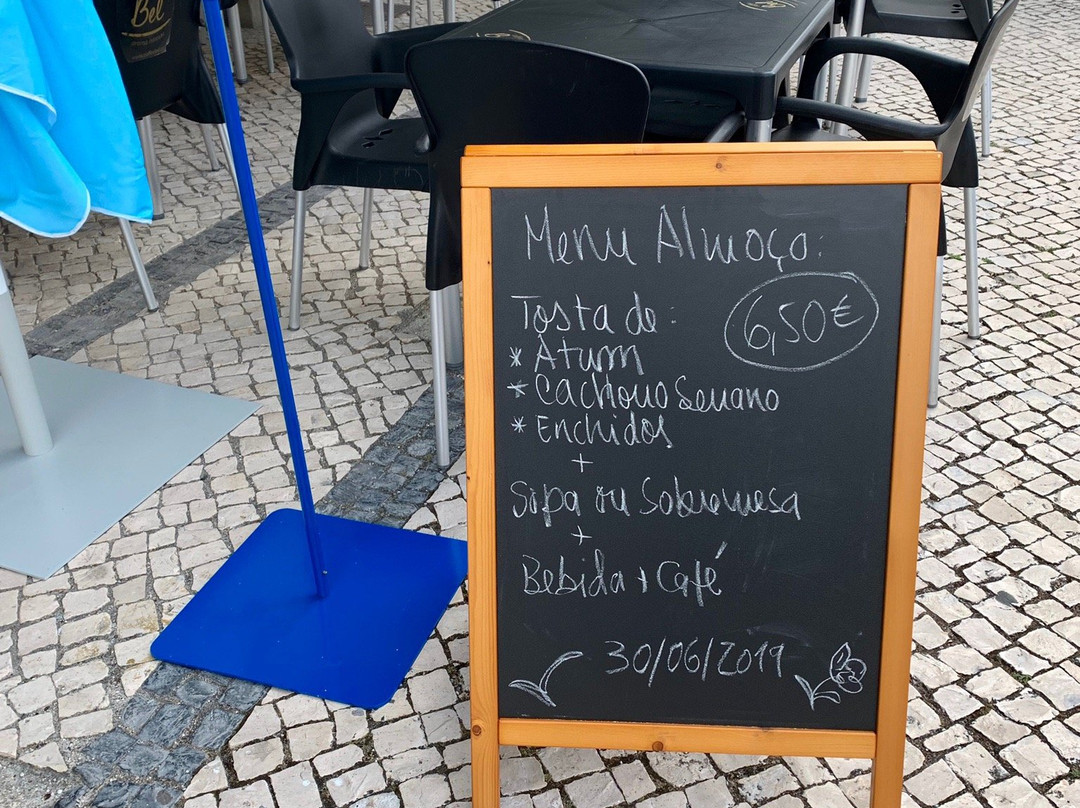 Bel
Menu Almoço:
6,50€
Tosta de:
* Atum
* Cachouo Serrano
* Enchidos
+
Sopa ou Sobremesa
+
Bebida + Café
30/06/2019